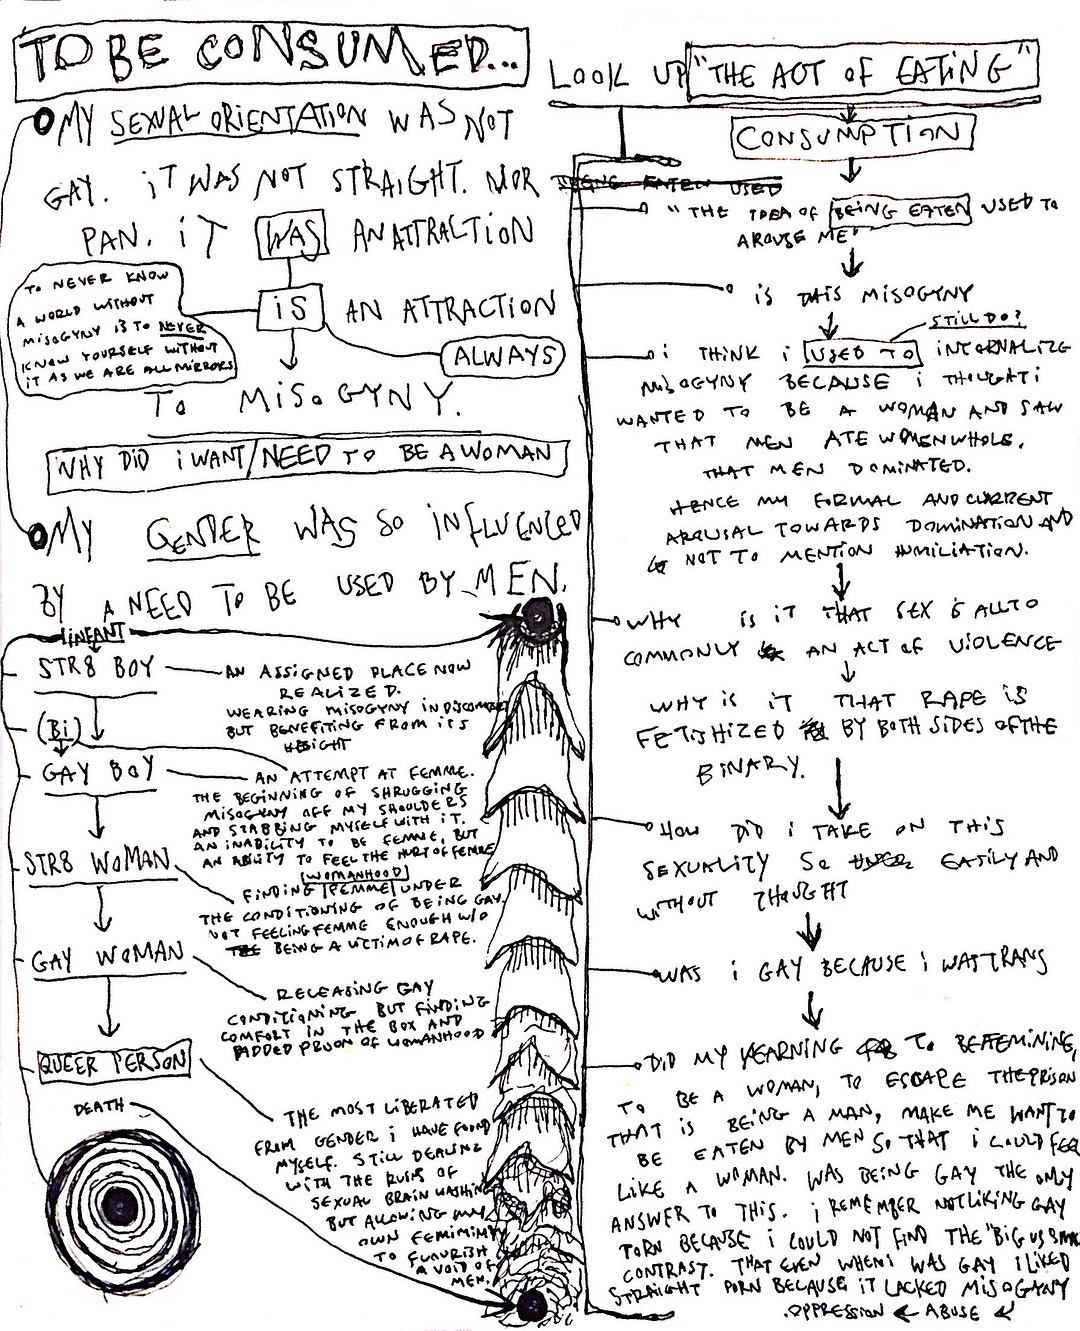 TO BE CONSUMED...
MY SEXUAL ORIENTATION WAS NOT
GAY. iT WAS NOT STRAIGHT. NOR
PAN. iT WAS AN ATTRACTION
iS AN ATTRACTION
ALWAYS
TO MiSOGYNY.
TO NEVER KNOW
A WORLD WITHOUT
MISOGYNY IS TO NEVER
KNOW YOURSELF WITHOUT
IT AS WE ARE ALL MIRRORS
WHY DiD i WANT/NEED TO BE A WOMAN
MY GENDER WAS SO iNFLUENCED
BY A NEED TO BE USED BY MEN.
iNFANT
STR8 BOY
AN ASSIGNED PLACE NOW
REALIZED.
WEARING MISOGYNY IN DISCOMFORT
BUT BENEFITING FROM ITS
WEIGHT
(Bi)
GAY BOY
AN ATTEMPT AT FEMME.
THE BEGINNING OF SHRUGGING
MISOGYNY OFF MY SHOULDERS
AND STABBING MYSELF WITH IT.
AN INABILITY TO BE FEMME, BUT
AN ABILITY TO FEEL THE HURT OF FEMME
STR8 WOMAN
WOMANHOOD
FINDING FEMME UNDER
THE CONDITIONING OF BEING GAY.
NOT FEELING FEMME ENOUGH W/O
BEING A VICTIM OF RAPE.
GAY WOMAN
RELEASING GAY
CONDITIONING BUT FINDING
COMFORT IN THE BOX AND
PADDED PRISON OF WOMANHOOD
QUEER PERSON
THE MOST LIBERATED
FROM GENDER i HAVE FOUND
MYSELF. STILL DEALING
WITH THE RUINS OF
SEXUAL BRAIN WASHING
BUT ALLOWING MY
OWN FEMIMIMITY
TO FLOURISH
A VOID OF
MEN.
DEATH
LOOK UP "THE ACT OF EATING"
CONSUMPTION
BEING EATEN USED
"THE IDEA OF BEING EATEN USED TO
AROUSE ME"
iS THIS MISOGYNY
STILL DO?
i THINK i USED TO INTERNALIZE
MISOGYNY BECAUSE i THOUGHT i
WANTED TO BE A WOMAN AND SAW
THAT MEN ATE WOMEN WHOLE.
THAT MEN DOMINATED.
HENCE MY FORMAL AND CURRENT
AROUSAL TOWARDS DOMINATION AND
NOT TO MENTION HUMILIATION.
WHY iS iT THAT SEX iS ALL TO
COMMONLY AN ACT OF VIOLENCE
WHY iS iT THAT RAPE iS
FETISHIZED BY BOTH SIDES OF THE
BINARY.
HOW DiD i TAKE ON THIS
SEXUALITY SO EASILY AND
WITHOUT THOUGHT
WAS i GAY BECAUSE i WAS TRANS
DiD MY YEARNING TO BE FEMININE,
TO BE A WOMAN, TO ESCAPE THE PRISON
THAT iS BEING A MAN, MAKE ME WANT TO
BE EATEN BY MEN SO THAT i COULD FEEL
LIKE A WOMAN. WAS BEING GAY THE ONLY
ANSWER TO THIS. i REMEMBER NOT LIKING GAY
PORN BECAUSE i COULD NOT FIND THE "BIG VS SMALL
CONTRAST. THAT EVEN WHEN i WAS GAY i LIKED
STRAIGHT PORN BECAUSE iT LACKED MISOGANY
OPPRESSION ABUSE